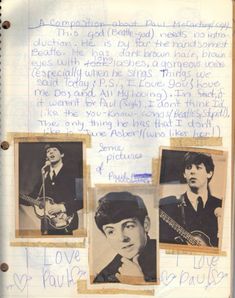 A Composition about Paul McCartney
This god (Beatle-god) needs no intro-
duction. He is by far the handsomest
Beatle. He has dark brown hair, brown
eyes with lashes, a gorgeous voice
(Especially when he sings Things we
said Today, P.S. I Love You, Love
me Do, and All My Loving). In fact, if
it weren't for Paul (sigh), I don't think I'd
like the you-know-whos (Beatles, stupid!).
The only thing he has that I don't
like is Jane Asher! (who likes her!)
Some
pictures
of
Paul
I Love
Paul
I Love
Paul